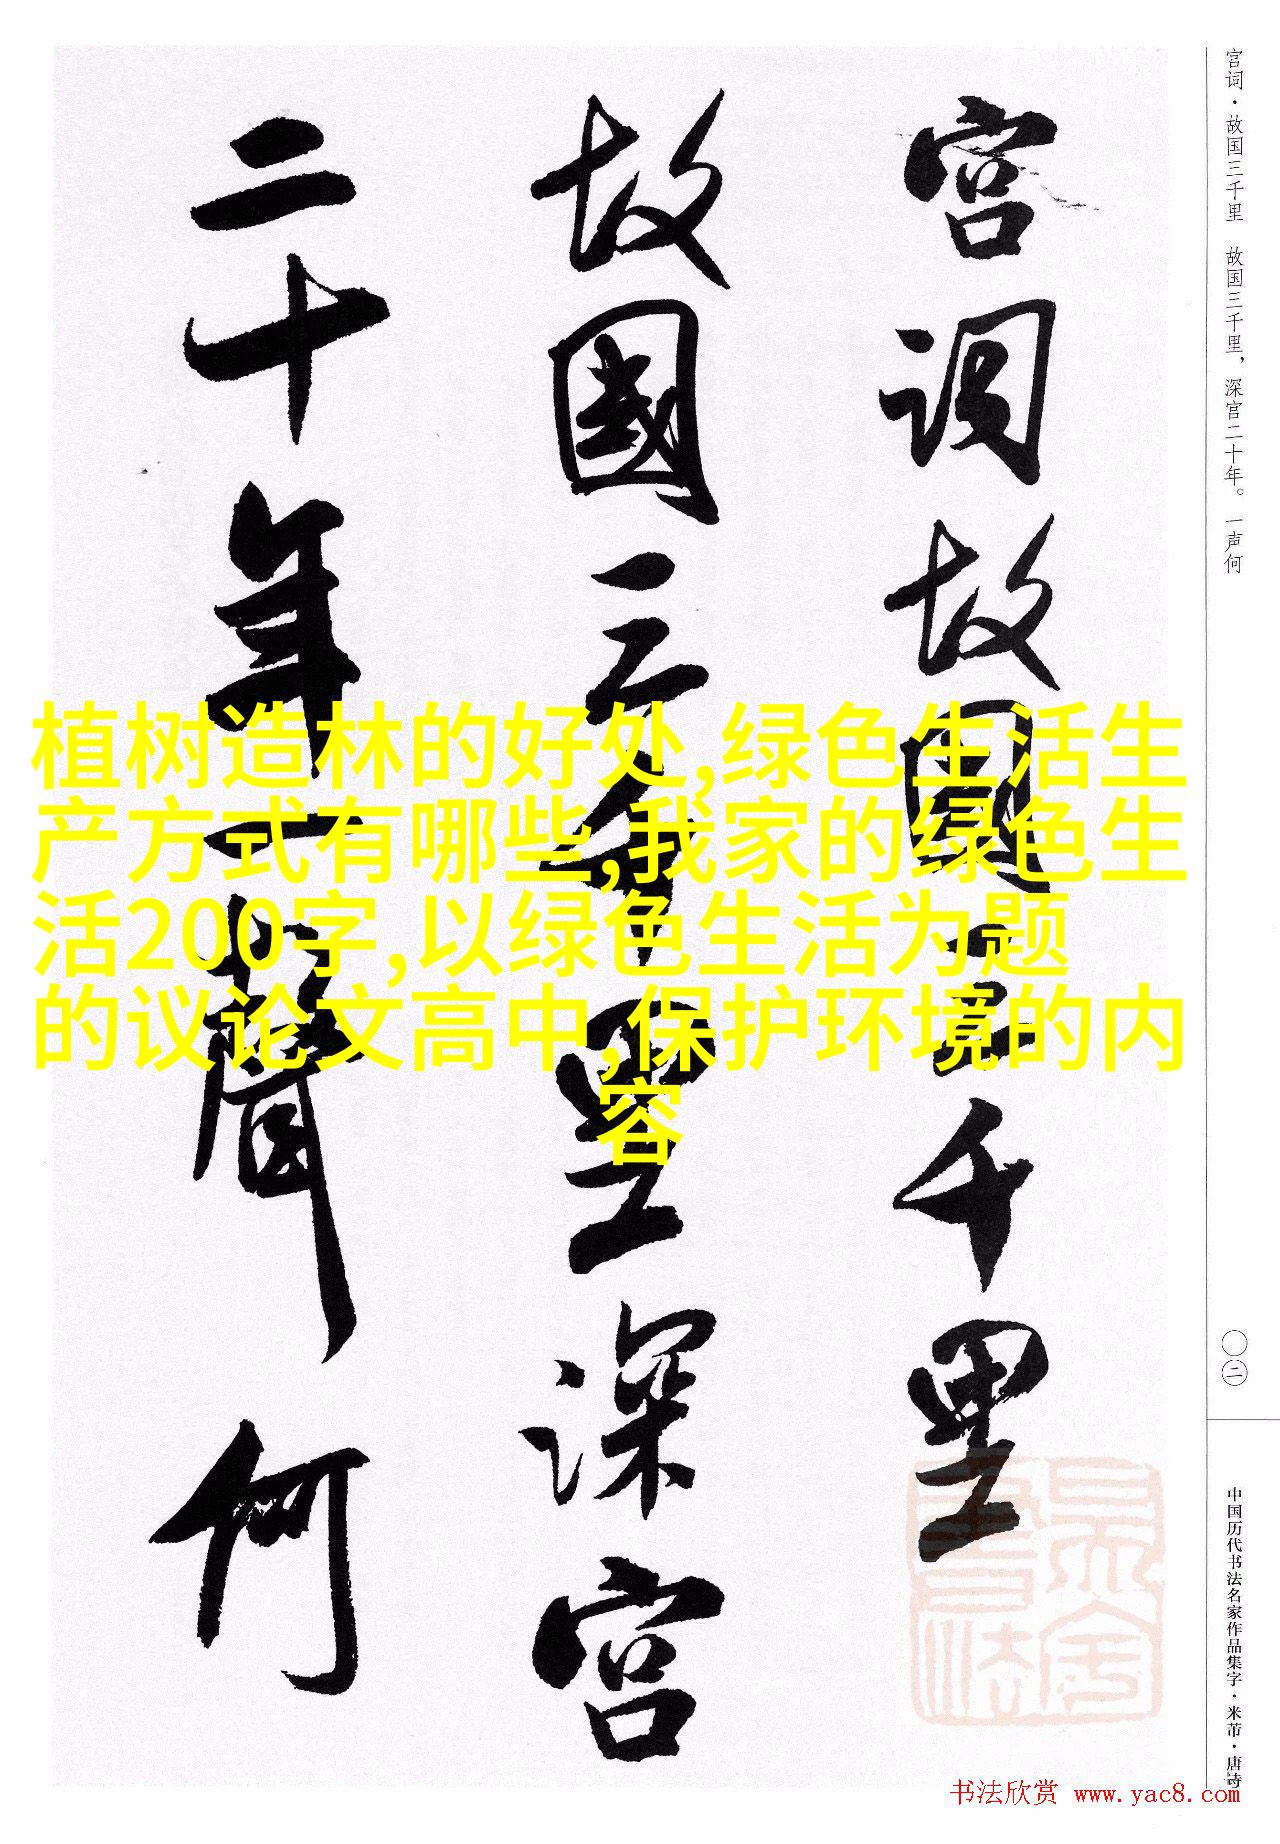 宫词·故国三千里 故国三千里，深宫二十年。一声何
宫词故国三千里
故國三千里深宫
二十年一聲何
植树造林的好处,绿色生活生
产方式有哪些,我家的绿色生
活200字,以绿色生活为题
的议论文高中,保护环境的内
容
〇二
中国历代书法名家作品集字·米芾·唐诗
书法欣赏 www.yac8.com